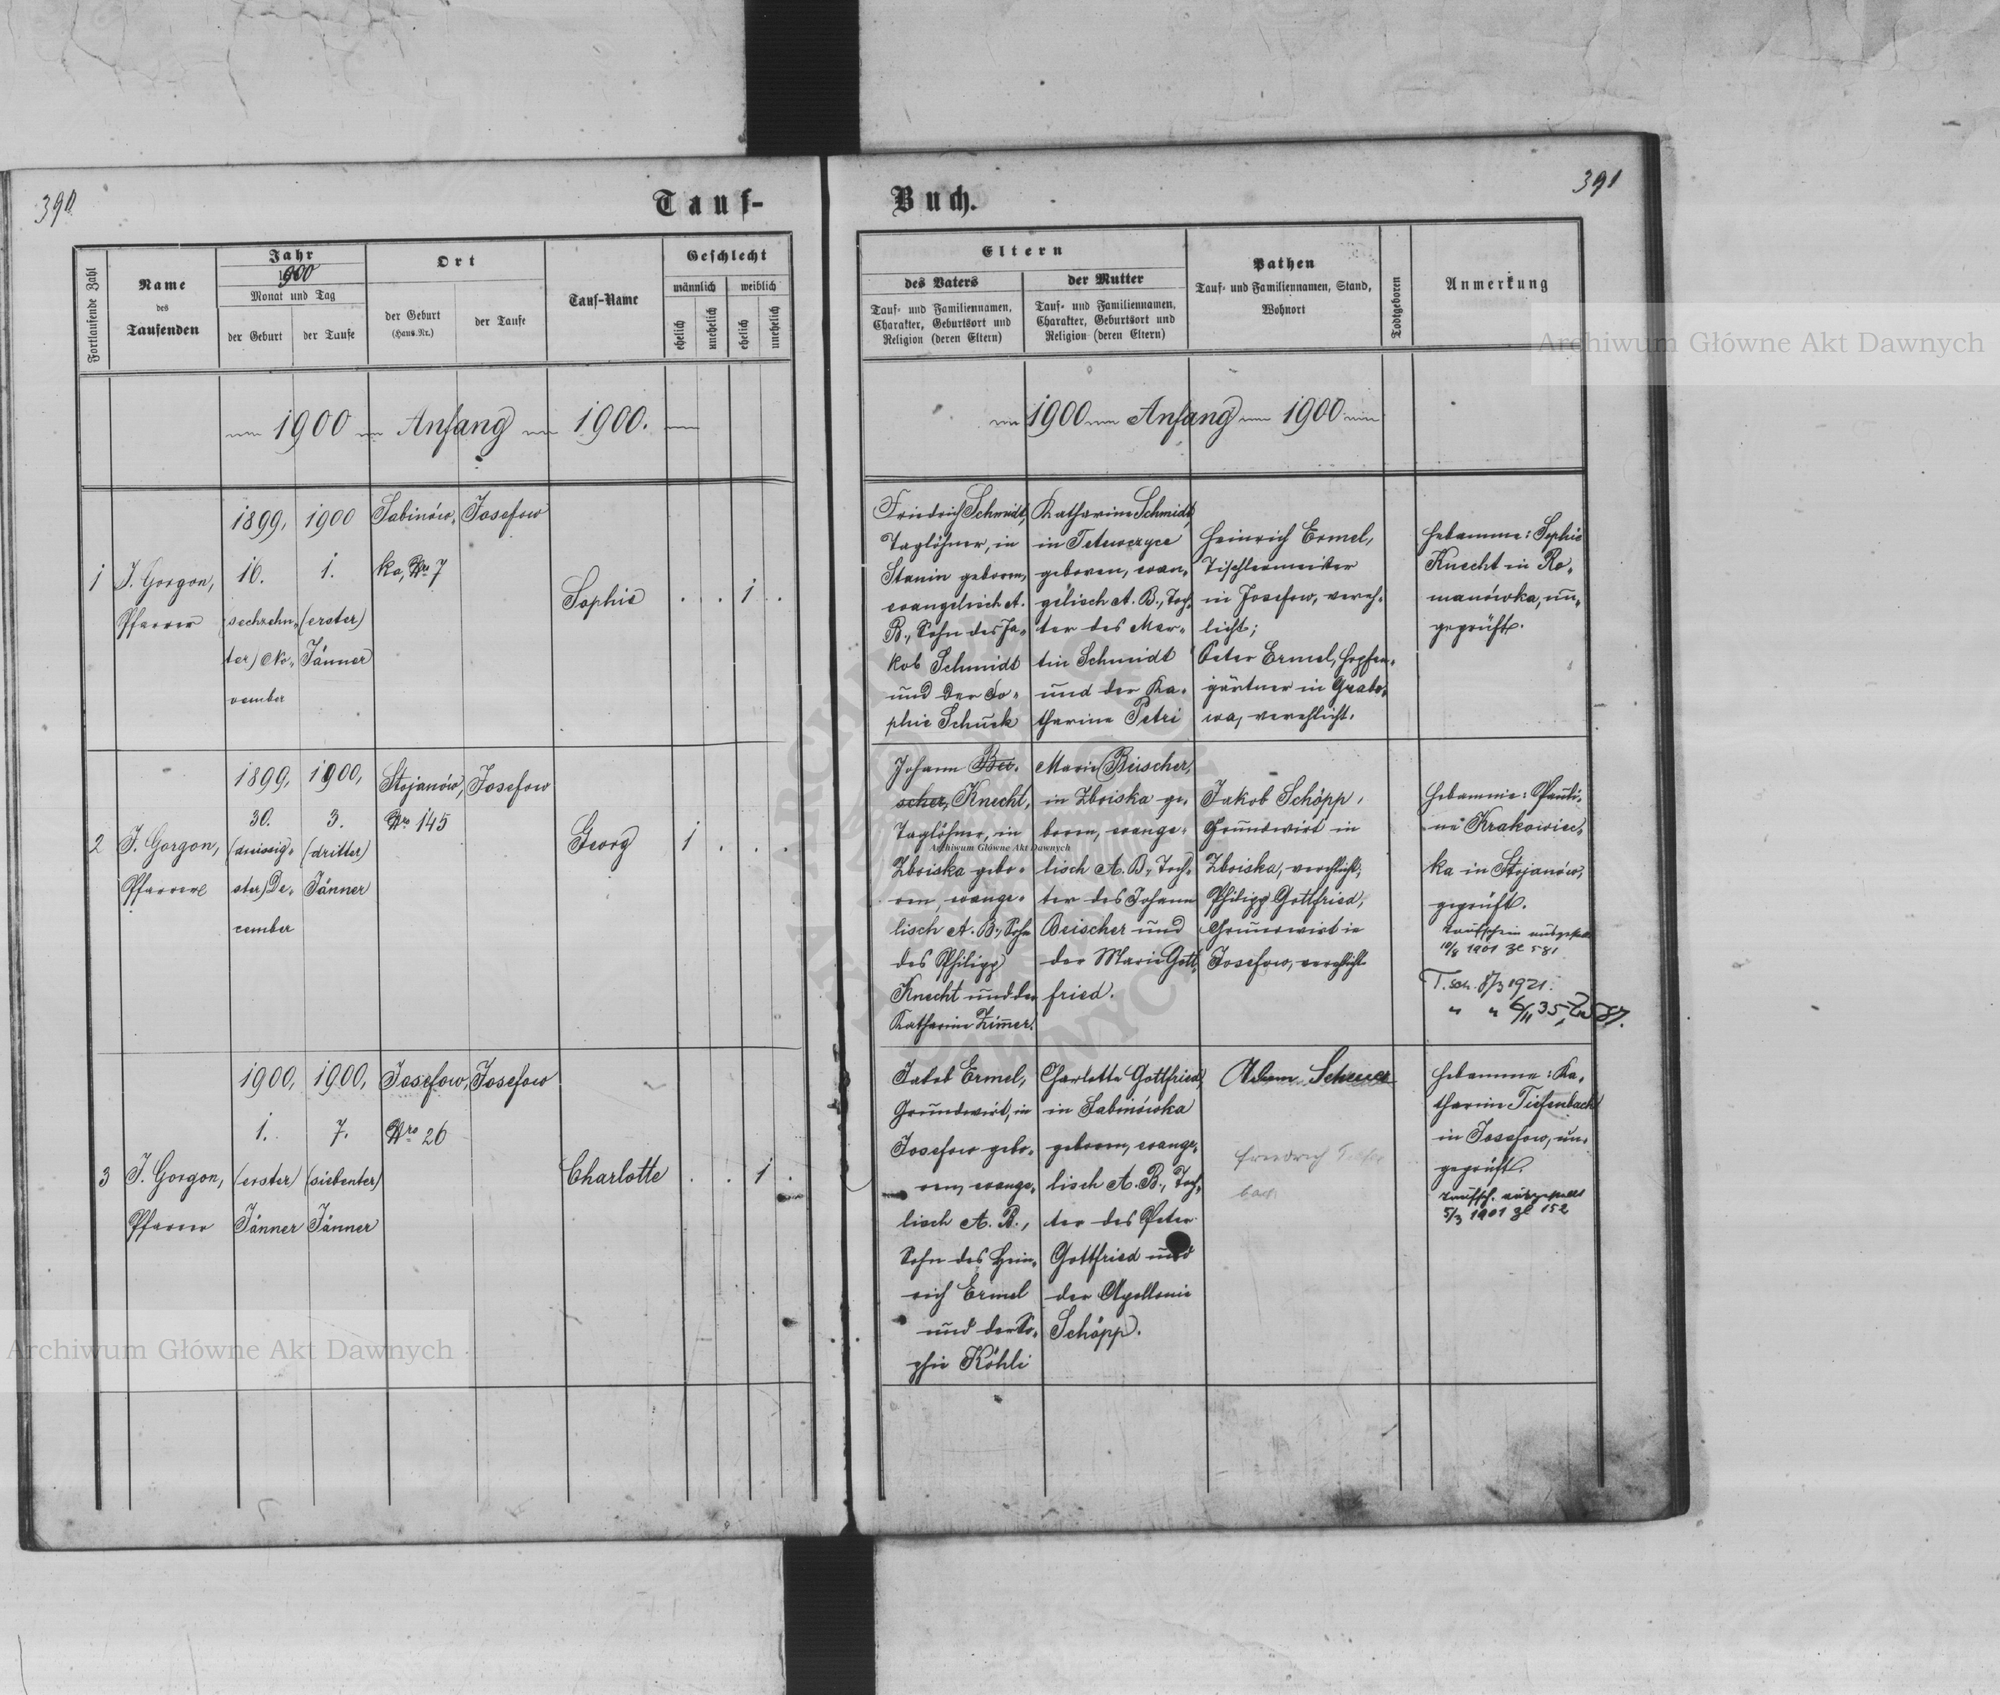 390
Tauf-
Fortlaufende Zahl
Name
des
Taufenden
Jahr
1900
Monat und Tag
der Geburt
der Taufe
Ort
der Geburt
(Haus-Nr.)
der Taufe
Tauf-Name
Geschlecht
männlich
weiblich
ehelich
unehelich
ehelich
unehelich
1900 Anfang 1900.
1
J. Gorgon,
Pfarrer
1899,
16.
(sechzehn-
ter) No-
vember
1900
1.
(erster)
Jänner
Sabinów-
ka, Nro 7
Josefow
Sophie
. . 1 .
2
J. Gorgon,
Pfarrer
1899,
30.
(dreissig-
ster) De-
cember
1900,
3.
(dritter)
Jänner
Stojanów,
Nro 145
Josefow
Georg
1 . . .
3
J. Gorgon,
Pfarrer
1900,
1.
(erster
Jänner
1900,
7.
(siebenter)
Jänner
Josefow,
Nro 26
Josefow
Charlotte
. . 1 .
Buch.
391
Eltern
des Vaters
Tauf- und Familiennamen,
Charakter, Geburtsort und
Religion (deren Eltern)
der Mutter
Tauf- und Familiennamen,
Charakter, Geburtsort und
Religion (deren Eltern)
Pathen
Tauf- und Familiennamen, Stand,
Wohnort
Todtgeboren
Anmerkung
1900 Anfang 1900
Friedrich Schmidt,
Taglöhner, in
Stanin geboren,
evangelisch A.
B., Sohn des Ja-
kob Schmidt
und der So-
phie Schuck
Katharina Schmidt,
in Tetewczyce
geboren, evan-
gelisch A. B., Toch-
ter des Mar-
tin Schmidt
und der Ka-
tharina Petri
Heinrich Ermel,
Tischlermeister
in Josefow, vereh-
licht;
Peter Ermel, Hopfen-
gärtner in Grabo-
wa, verehlicht.
Hebamme: Sophie
Knecht in Ro-
manówka, un-
geprüft.
Johann Bei-
scher, Knecht,
Taglöhner, in
Zboiska gebo-
ren, evange-
lisch A. B., Sohn
des Philipp
Knecht und der
Katharina Zimmer.
Marie Beischer,
in Zboiska ge-
boren, evange-
lisch A. B., Toch-
ter des Johann
Beischer und
der Marie Gott-
fried.
Jakob Schöpp,
Grundwirt in
Zboiska, verehlicht;
Philipp Gottfried,
Grundwirt in
Josefow, verehlicht
Hebamme: Pauli-
ne Krakowiec-
ka in Stojanów,
geprüft.
Taufschein ausgestellt
10/8 1901 Zl 581
T. sch. 8/3 1921.
" " 6/11 35, Zl 87.
Jakob Ermel,
Grundwirt, in
Josefow gebo-
ren, evange-
lisch A. B.,
Sohn des Hein-
rich Ermel
und der So-
phie Köhli
Charlotte Gottfried,
in Sabinówka
geboren, evange-
lisch A. B., Toch-
ter des Peter
Gottfried und
der Apollonia
Schöpp.
Adam Scherer
Friedrich Tiefen
bach
Hebamme: Ka-
tharina Tiefenbach
in Josefow, un-
geprüft.
Taufsch. ausgestellt
5/3 1901 Zl 152
Archiwum Główne Akt Dawnych
Archiwum Główne Akt Dawnych
Archiwum Główne Akt Dawnych